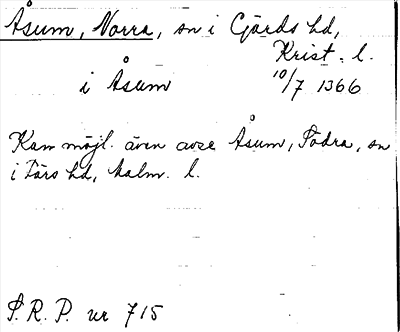 Åsum, Norra, sn i Gärds hd,
Krist. l.
i Åsum 10/7 1366
Kan möjl. även avse Åsum, Södra, sn
i Färs hd, Malm. l.
S.R.P. nr 715